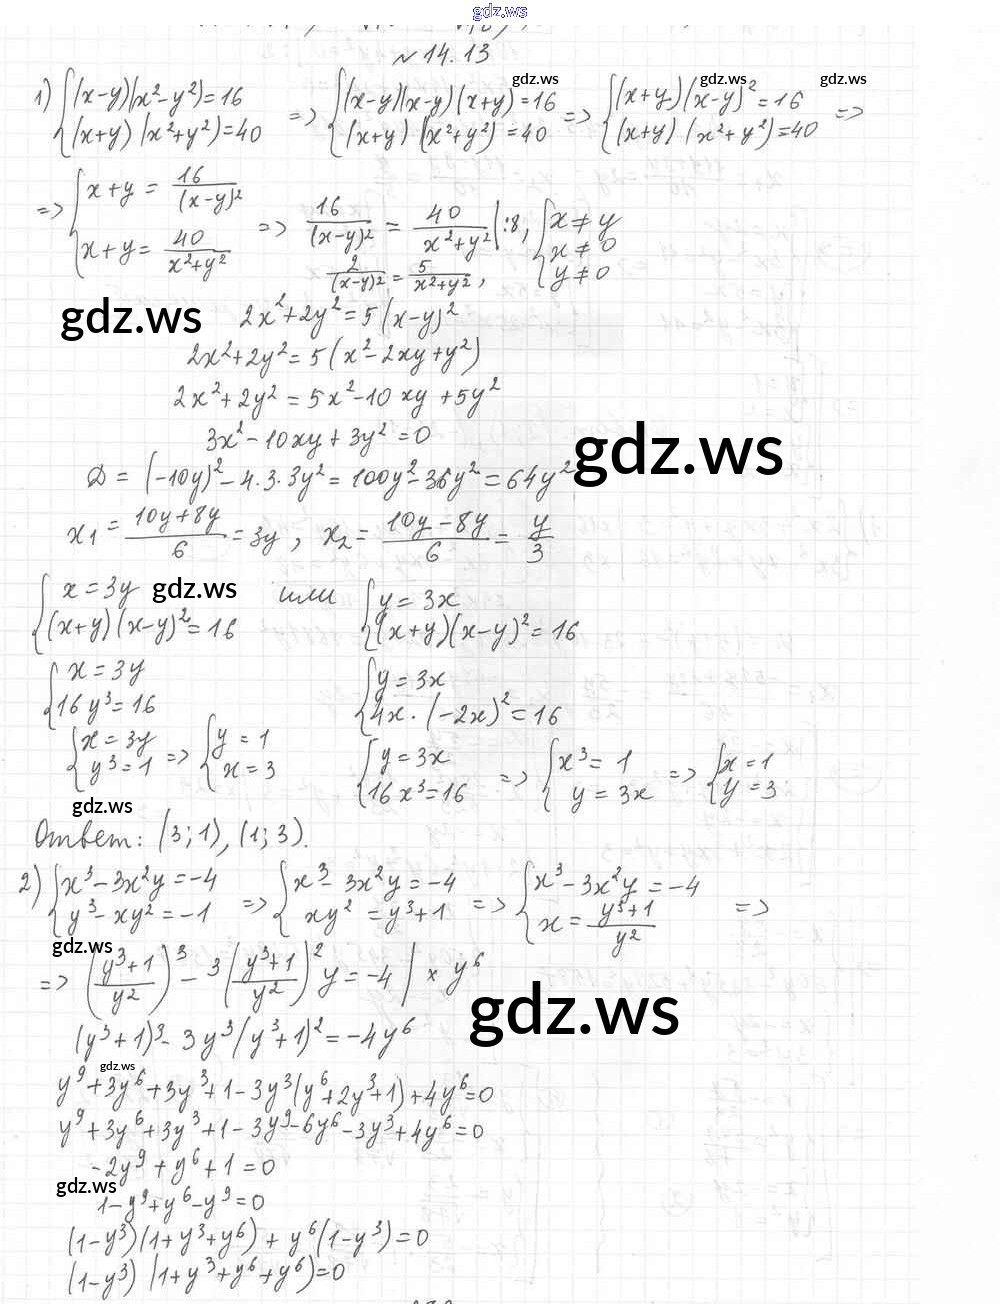 gdz.ws
№ 14.13
gdz.ws gdz.ws gdz.ws
1) {(x-y)(x²-y²)=16 => {(x-y)(x-y)(x+y)=16 => {(x+y)(x-y)²=16 =>
(x+y)(x²+y²)=40 (x+y)(x²+y²)=40 (x+y)(x²+y²)=40
=> {x+y = 16/(x-y)² => 16/(x-y)² = 40/(x²+y²) |:8, {x≠y
x+y = 40/(x²+y²) 2/(x-y)² = 5/(x²+y²), x≠0
y≠0
gdz.ws 2x²+2y²=5(x-y)²
2x²+2y²=5(x²-2xy+y²)
2x²+2y²=5x²-10xy+5y²
3x²-10xy+3y²=0
gdz.ws
D = (-10y)²-4·3·3y²=100y²-36y²=64y²
x₁ = (10y+8y)/6 = 3y, x₂ = (10y-8y)/6 = y/3
{x=3y gdz.ws или {y=3x
(x+y)(x-y)²=16 (x+y)(x-y)²=16
{x=3y {y=3x
16y³=16 4x·(-2x)²=16
{x=3y => {y=1 {y=3x => {x³=1 => {x=1
y³=1 x=3 16x³=16 y=3x y=3
gdz.ws
Ответ: (3;1), (1;3).
2) {x³-3x²y=-4 => {x³-3x²y=-4 => {x³-3x²y=-4 =>
y³-xy²=-1 xy²=y³+1 x=(y³+1)/y²
gdz.ws
=> ((y³+1)/y²)³ - 3((y³+1)/y²)² y = -4 | × y⁶
gdz.ws
(y³+1)³-3y³(y³+1)²=-4y⁶
gdz.ws
y⁹+3y⁶+3y³+1-3y³(y⁶+2y³+1)+4y⁶=0
y⁹+3y⁶+3y³+1-3y⁹-6y⁶-3y³+4y⁶=0
-2y⁹+y⁶+1=0
gdz.ws
1-y⁹+y⁶-y⁹=0
(1-y³)(1+y³+y⁶)+y⁶(1-y³)=0
(1-y³)(1+y³+y⁶+y⁶)=0